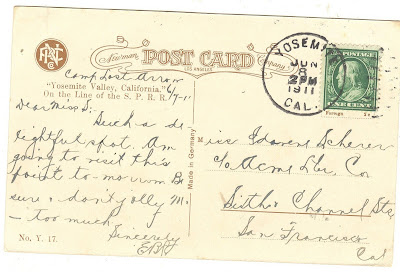 Newman POST CARD Company
LOS ANGELES
Camp Lost Arrow
"Yosemite Valley, California." 6/7-11
On the Line of the S. P. R. R.
Dear Miss S.
Such a de
lightful spot. Am
going to visit this
point to-morrow. Be
sure & don't jolly M.
- too much.
Sincerely
No. Y. 17.
Made in Germany
YOSEMITE
JUN
8
2 PM
1911
CAL.
U.S. POSTAGE
ONE CENT
Miss Scherer
c/o Acme Co
Sixth & Channel Sts
San Francisco
Cal